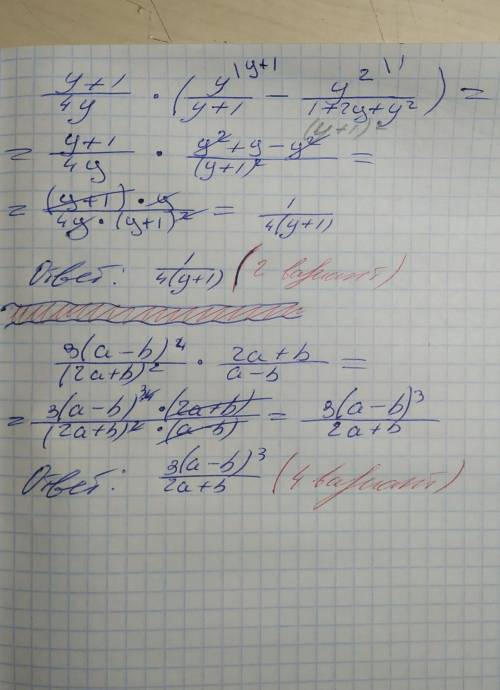 (y+1)/(4y) · ( y^{\y+1}/(y+1) − y^{2 \1}/(1+2y+y²) ) =
(y+1)²
= (y+1)/(4y) · (y²+y−y²)/((y+1)²) =
= ((y+1)·y)/(4y·(y+1)²) = 1/(4(y+1))
Ответ: 1/(4(y+1)) (2 вариант)
3(a−b)⁴/(2a+b)² · (2a+b)/(a−b) =
= (3(a−b)^{3 4}·(2a+b))/((2a+b)²·(a−b)) = 3(a−b)³/(2a+b)
Ответ: 3(a−b)³/(2a+b) (4 вариант)